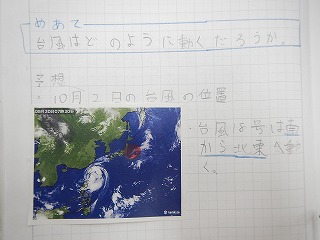 めあて
台風はどのように動くだろうか。
予想
・10月2日の台風の位置
・台風18号は
から北東へ動
く。